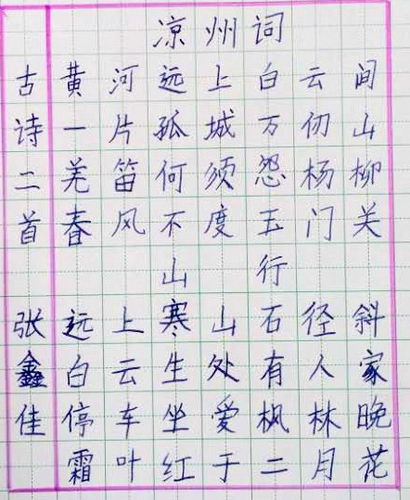 古诗二首
张鑫佳
凉州词
黄河远上白云间
一片孤城万仞山
羌笛何须怨杨柳
春风不度玉门关
山行
远上寒山石径斜
白云生处有人家
停车坐爱枫林晚
霜叶红于二月花